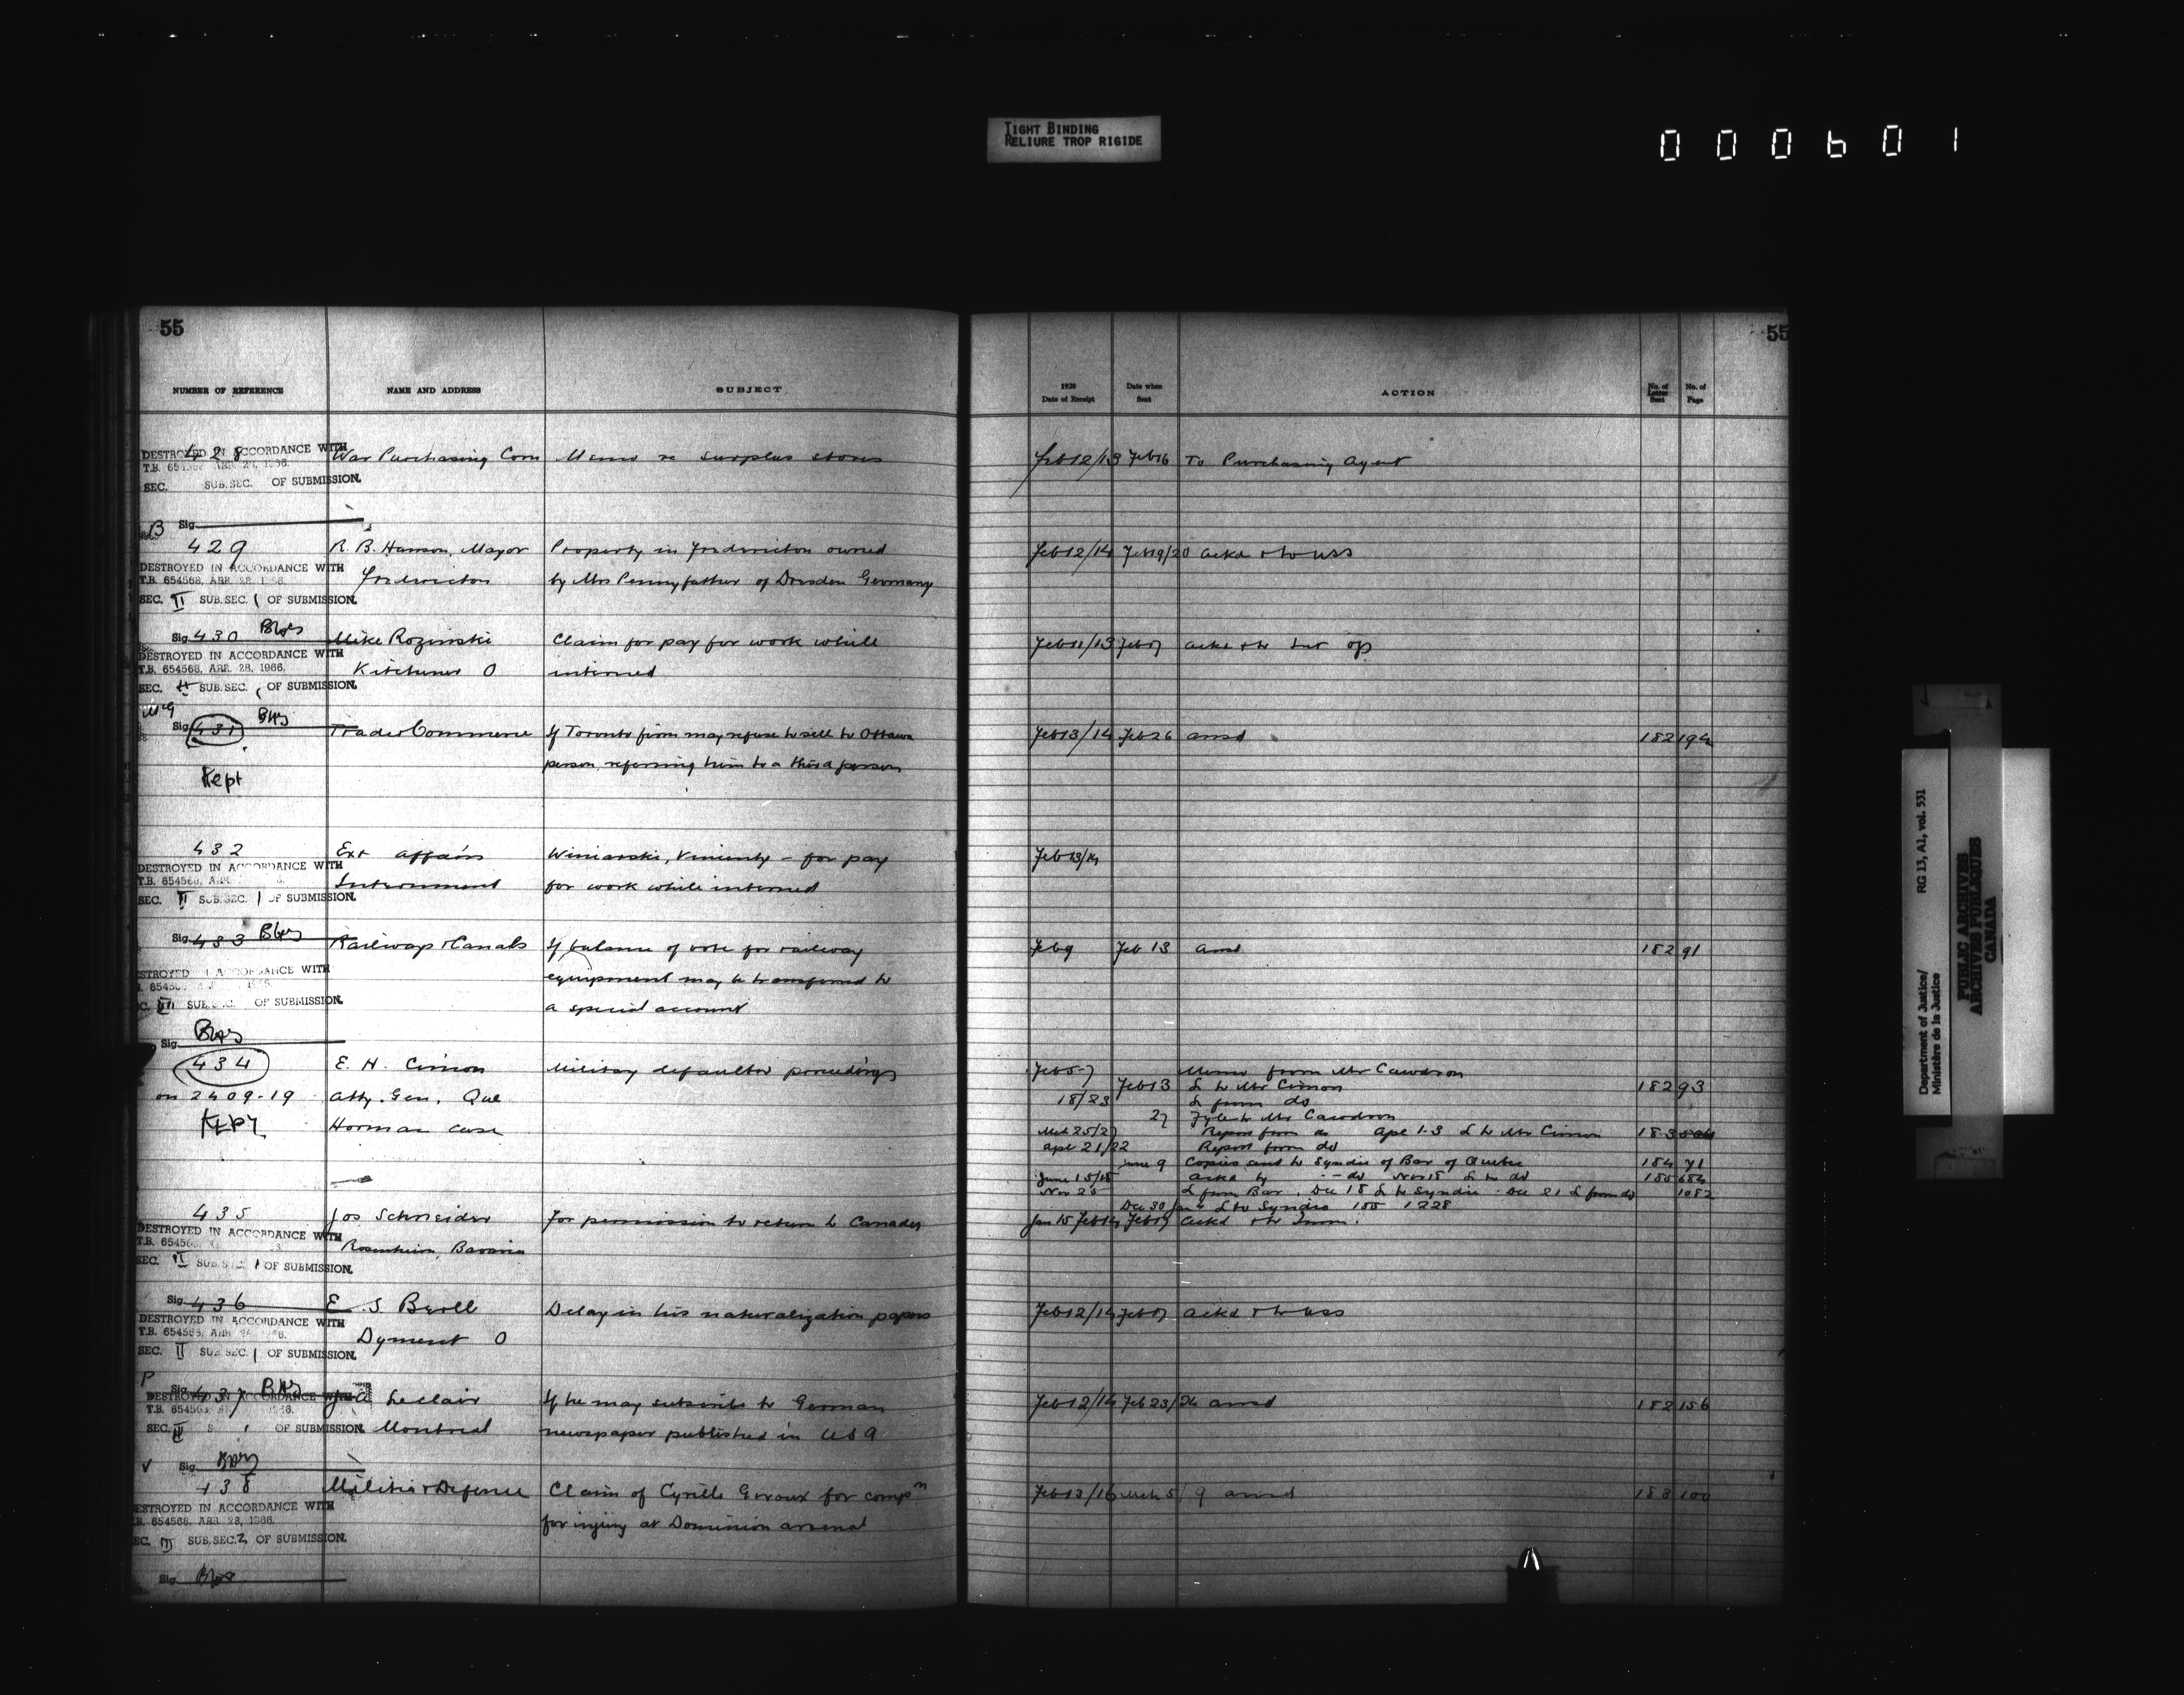 TIGHT BINDING
RELIURE TROP RIGIDE
000601
55
NUMBER OF REFERENCE NAME AND ADDRESS SUBJECT
428 War Purchasing Com Memo re surplus stores
DESTROYED IN ACCORDANCE WITH
T.B. 654568, APR. 28, 1966.
SEC. SUB.SEC. OF SUBMISSION.
Sig.
B
429 R. B. Hanson, Mayor Property in Fredericton owned
Fredericton by Mrs Pennyfather of Dresden Germany
DESTROYED IN ACCORDANCE WITH
T.B. 654568, APR. 28, 1966.
SEC. II SUB.SEC. 1 OF SUBMISSION.
Sig.
430 Mike Rozinski Claim for pay for work while
Kitchener O interned
DESTROYED IN ACCORDANCE WITH
T.B. 654568, APR. 28, 1966.
SEC. II SUB.SEC. 1 OF SUBMISSION.
McG
Sig.
431 Trade & Commerce If Toronto firm may refuse to sell to Ottawa
person, referring him to a third person
Kept
432 Ext affairs Winiarski, – for pay
Internment for work while interned
DESTROYED IN ACCORDANCE WITH
T.B. 654568, APR.
SEC. II SUB.SEC. 1 OF SUBMISSION.
Sig.
433 Railways & Canals If balance of vote for railway
equipment may be transferred to
a special account
DESTROYED IN ACCORDANCE WITH
SEC. III SUB.SEC. OF SUBMISSION.
Sig.
434 E. H. Cimon Military defaulter proceedings
on 2409-19 Atty. Gen. Que
KEPT Horman case
435 Jos Schneider For permission to return to Canada
Rosenheim, Bavaria
DESTROYED IN ACCORDANCE WITH
T.B. 654568
SEC. II SUB.SEC. 1 OF SUBMISSION.
Sig.
436 E. S. Broll Delay in his naturalization papers
Dyment O
DESTROYED IN ACCORDANCE WITH
T.B. 654568, APR. 28, 1966.
SEC. II SUB.SEC. 1 OF SUBMISSION.
P
Sig.
437 Leclair If he may subscribe to German
Montreal newspaper published in USA
DESTROYED IN ACCORDANCE WITH
T.B. 654568
SEC. II OF SUBMISSION.
Sig.
438 Militia & Defence Claim of Cyrille Giroux for compn
for injury at Dominion arsenal
DESTROYED IN ACCORDANCE WITH
T.B. 654568, APR. 28, 1966.
SEC. III SUB.SEC. 2 OF SUBMISSION.
Sig.
55
1920 Date of Receipt Date when Sent ACTION No. of Letter Sent No. of Page
Feb 12/13 Feb 16 To Purchasing Agent
Feb 12/14 Feb 19/20 ackd & to USS
Feb 11/13 Feb 17 ackd & to Int op
Feb 13/14 Feb 26 ansd 182 194
Feb 13/14
Feb 9 Feb 13 ansd 182 91
Feb 5-7 Memo from Mr Cawdron
Feb 13 L to Mr Cimon 182 93
18/23 L from do
27 File to Mr Cawdron
Mch 25/27 Report from do Apl 1-3 L to Mr Cimon 183
Apl 21/22 Report from do
June 9 Copies sent to Syndic of Bar of Quebec 184 71
June 15/18 ackd by – do Nov 18 L to do 185 684
Nov 25 L from Bar. Dec 18 L to Syndic - Dec 21 L from do 1082
Dec 30 Jan 4 L to Syndic 185 1228
Jan 15 Feb 14 Feb 17 ackd & to Imm.
Feb 12/14 Feb 17 ackd & to USS
Feb 12/14 Feb 23/24 ansd 182 156
Feb 13/16 Mch 5/9 ansd 183 100
Department of Justice/
Ministère de la Justice
RG 13, A1, vol. 531
PUBLIC ARCHIVES
ARCHIVES PUBLIQUES
CANADA